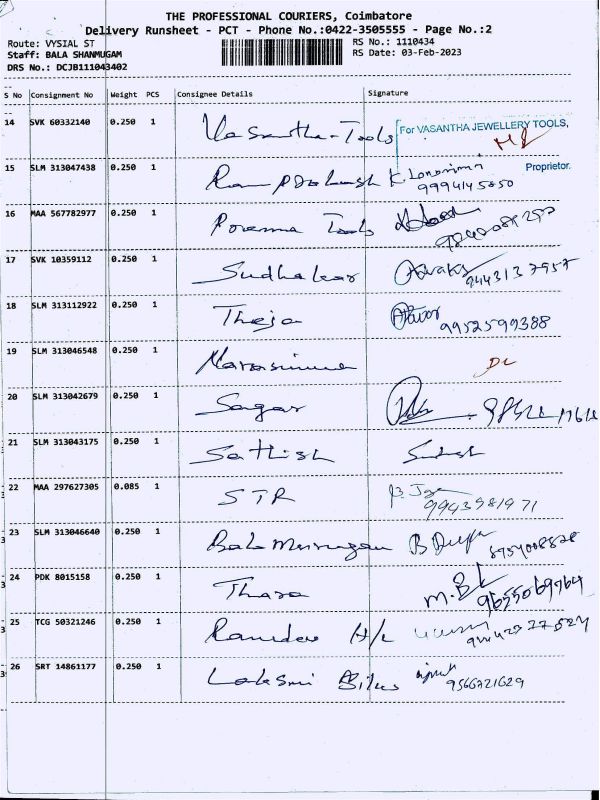 THE PROFESSIONAL COURIERS, Coimbatore
Delivery Runsheet - PCT - Phone No.:0422-3505555 - Page No.:2
Route: VYSIAL ST RS No.: 1110434
Staff: BALA SHANMUGAM RS Date: 03-Feb-2023
DRS No.: DCJB111043402
S No Consignment No Weight PCS Consignee Details Signature
14 SVK 60332140 0.250 1 Vasantha-Tools For VASANTHA JEWELLERY TOOLS,
Proprietor.
15 SLM 313047438 0.250 1 Ramprakash K.
16 MAA 567782977 0.250 1 Poranna Tools
17 SVK 10359112 0.250 1 Sudhakar 9443137957
18 SLM 313112922 0.250 1 Theja 9952599388
19 SLM 313046548 0.250 1 Narasimma
20 SLM 313042679 0.250 1 Sagar
21 SLM 313043175 0.250 1 Sathish
22 MAA 297627305 0.085 1 STR 9943981971
23 SLM 313046640 0.250 1 Balamurugan B
24 PDK 8015158 0.250 1 Thara 9655069764
25 TCG 50321246 0.250 1 Ramdev H/L
26 SRT 14861177 0.250 1 Laksmi 9566721629